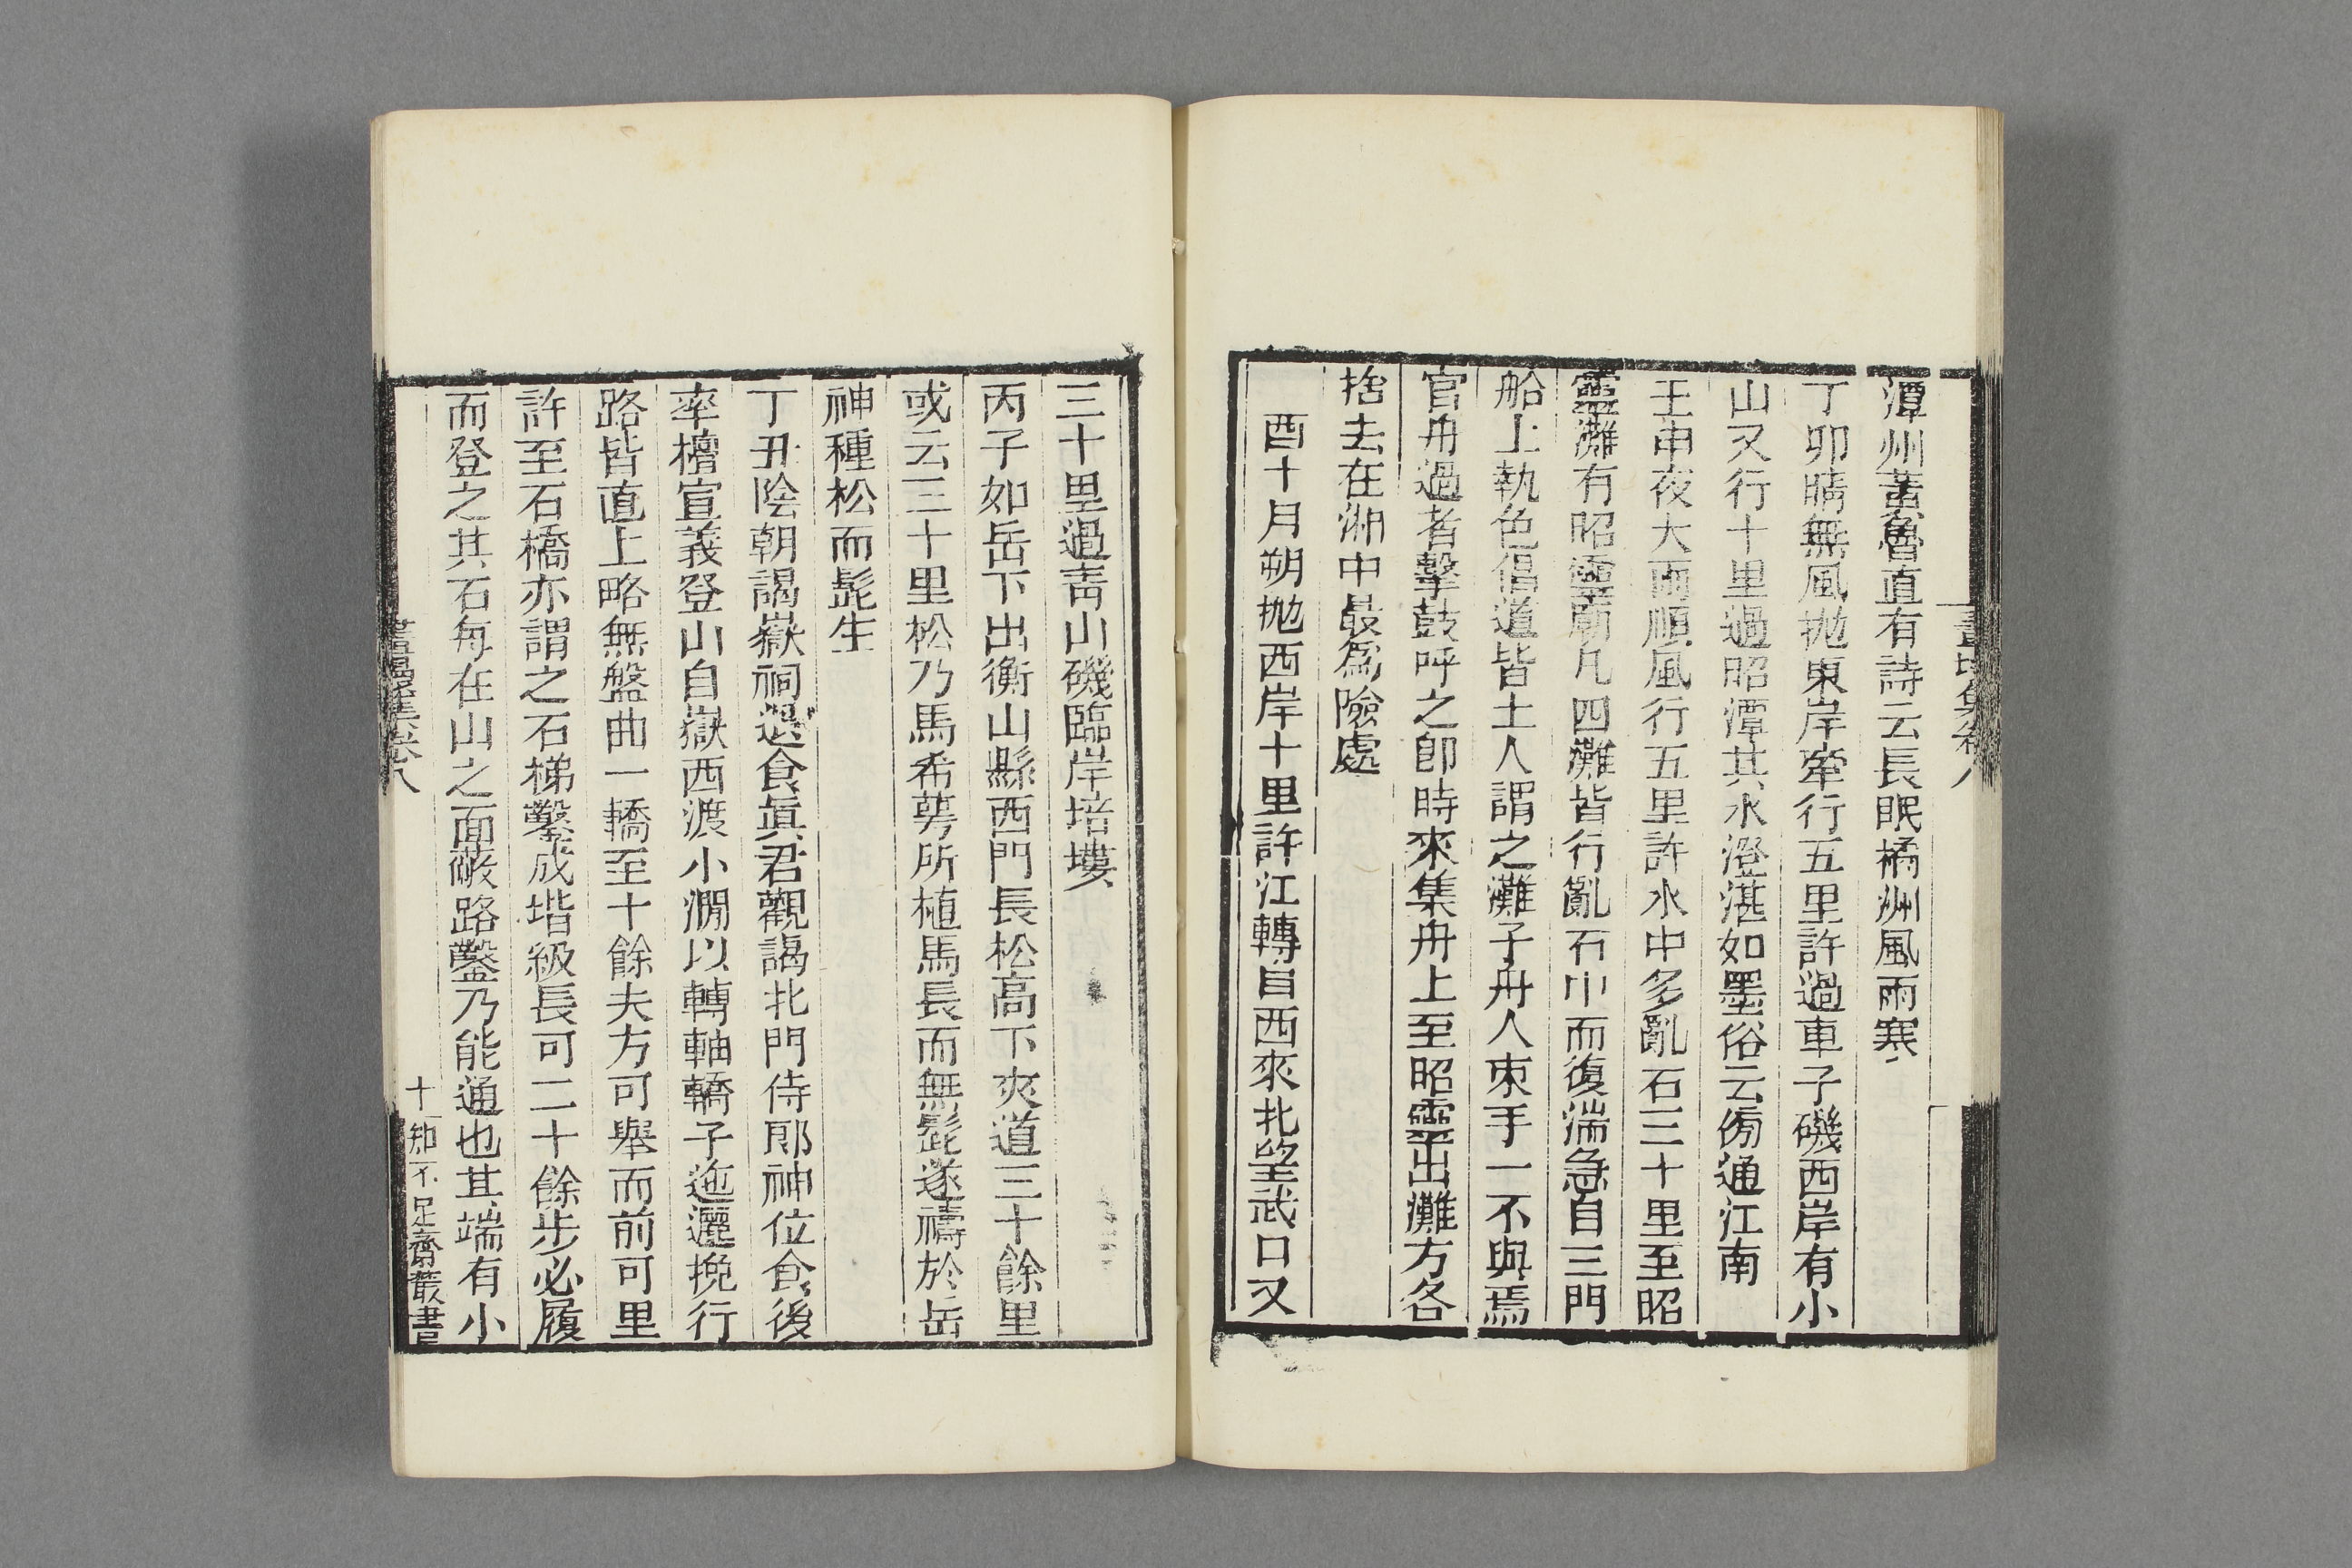 潭州黃魯直有詩云長眠橘洲風雨寒
丁卯晴無風抛東岸牽行五里許過車子磯西岸有小
山又行十里過昭潭其水澄湛如墨俗云傍通江南
壬申夜大雨順風行五里許水中多亂石三十里至昭
靈灘有昭靈廟凡四灘皆行亂石中而復湍急自三門
船上執色倡道皆土人謂之灘子舟人束手一不與焉
官舟過者擊鼓呼之卽時來集舟上至昭靈出灘方各
捨去在湘中最爲險處
酉十月朔抛西岸十里許江轉自西來北望武口又
三十里過青山磯臨岸培塿
丙子如岳下出衡山縣西門長松高下夾道三十餘里
或云三十里松乃馬希萼所植馬長而無髭遂禱於岳
神種松而髭生
丁丑陰朝謁嶽祠退食眞君觀謁北門侍郎神位食後
率檜宣義登山自嶽西渡小澗以轉軸轎子迤邐挽行
路皆直上略無盤曲一轎至十餘夫方可舉而前可里
許至石橋亦謂之石梯鑿成堦級長可二十餘步必履
而登之其石每在山之面蔽路鑿乃能通也其端有小
畫墁集卷八
十
知不足齋叢書